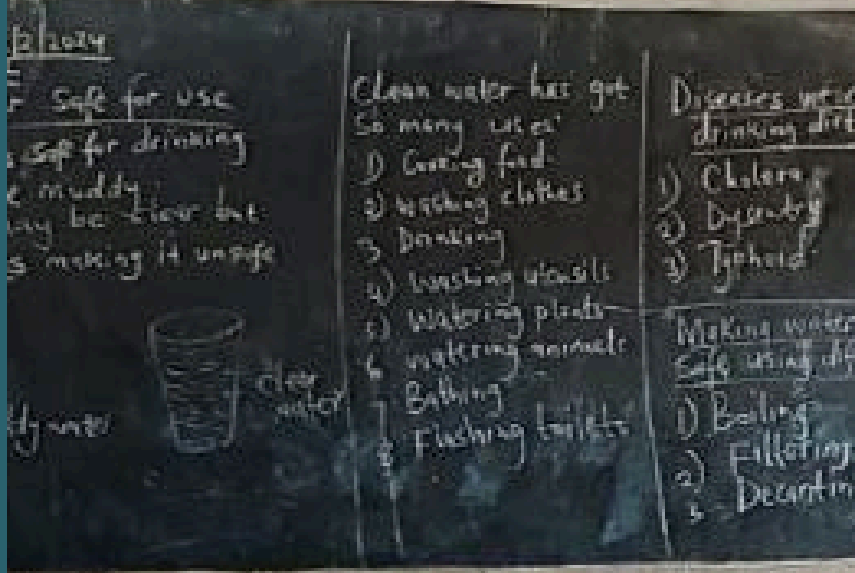 /2/2024
r safe for use
s safe for drinking
e muddy.
may be clear but
s making it unsafe
clear
water
dy water
Clean water has got
So many uses
1) Cooking food
2) washing clothes
3 Drinking
4) Washing utensils
5) Watering plants
6 watering animals
7 Bathing
8 Flushing toilets
Diseases we
drinking dirt
1) Cholera
2) Dysentry
3) Typhoid
Making water
Safe using dif
1) Boiling
2) Filtering
3 Decantin